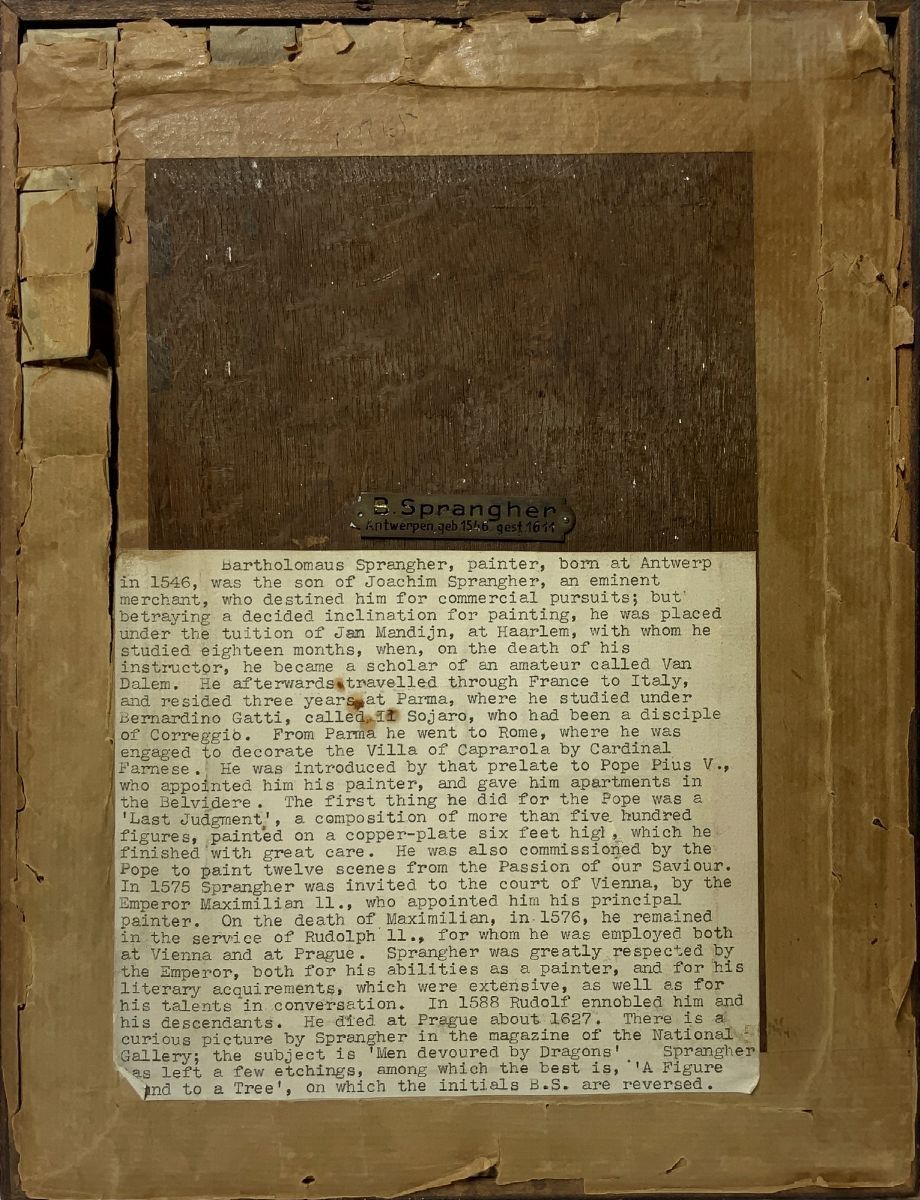 B.Sprangher
Antwerpen geb 1546. gest 1611
Bartholomaus Sprangher, painter, born at Antwerp
in 1546, was the son of Joachim Sprangher, an eminent
merchant, who destined him for commercial pursuits; but
betraying a decided inclination for painting, he was placed
under the tuition of Jan Mandijn, at Haarlem, with whom he
studied eighteen months, when, on the death of his
instructor, he became a scholar of an amateur called Van
Dalem. He afterwards travelled through France to Italy,
and resided three years at Parma, where he studied under
Bernardino Gatti, called Il Sojaro, who had been a disciple
of Correggio. From Parma he went to Rome, where he was
engaged to decorate the Villa of Caprarola by Cardinal
Farnese. He was introduced by that prelate to Pope Pius V.,
who appointed him his painter, and gave him apartments in
the Belvidere. The first thing he did for the Pope was a
'Last Judgment', a composition of more than five hundred
figures, painted on a copper-plate six feet high, which he
finished with great care. He was also commissioned by the
Pope to paint twelve scenes from the Passion of our Saviour.
In 1575 Sprangher was invited to the court of Vienna, by the
Emperor Maximilian ll., who appointed him his principal
painter. On the death of Maximilian, in 1576, he remained
in the service of Rudolph ll., for whom he was employed both
at Vienna and at Prague. Sprangher was greatly respected by
the Emperor, both for his abilities as a painter, and for his
literary acquirements, which were extensive, as well as for
his talents in conversation. In 1588 Rudolf ennobled him and
his descendants. He died at Prague about 1627. There is a
curious picture by Sprangher in the magazine of the National
Gallery; the subject is 'Men devoured by Dragons' Sprangher
has left a few etchings, among which the best is, 'A Figure
to a Tree', on which the initials B.S. are reversed.